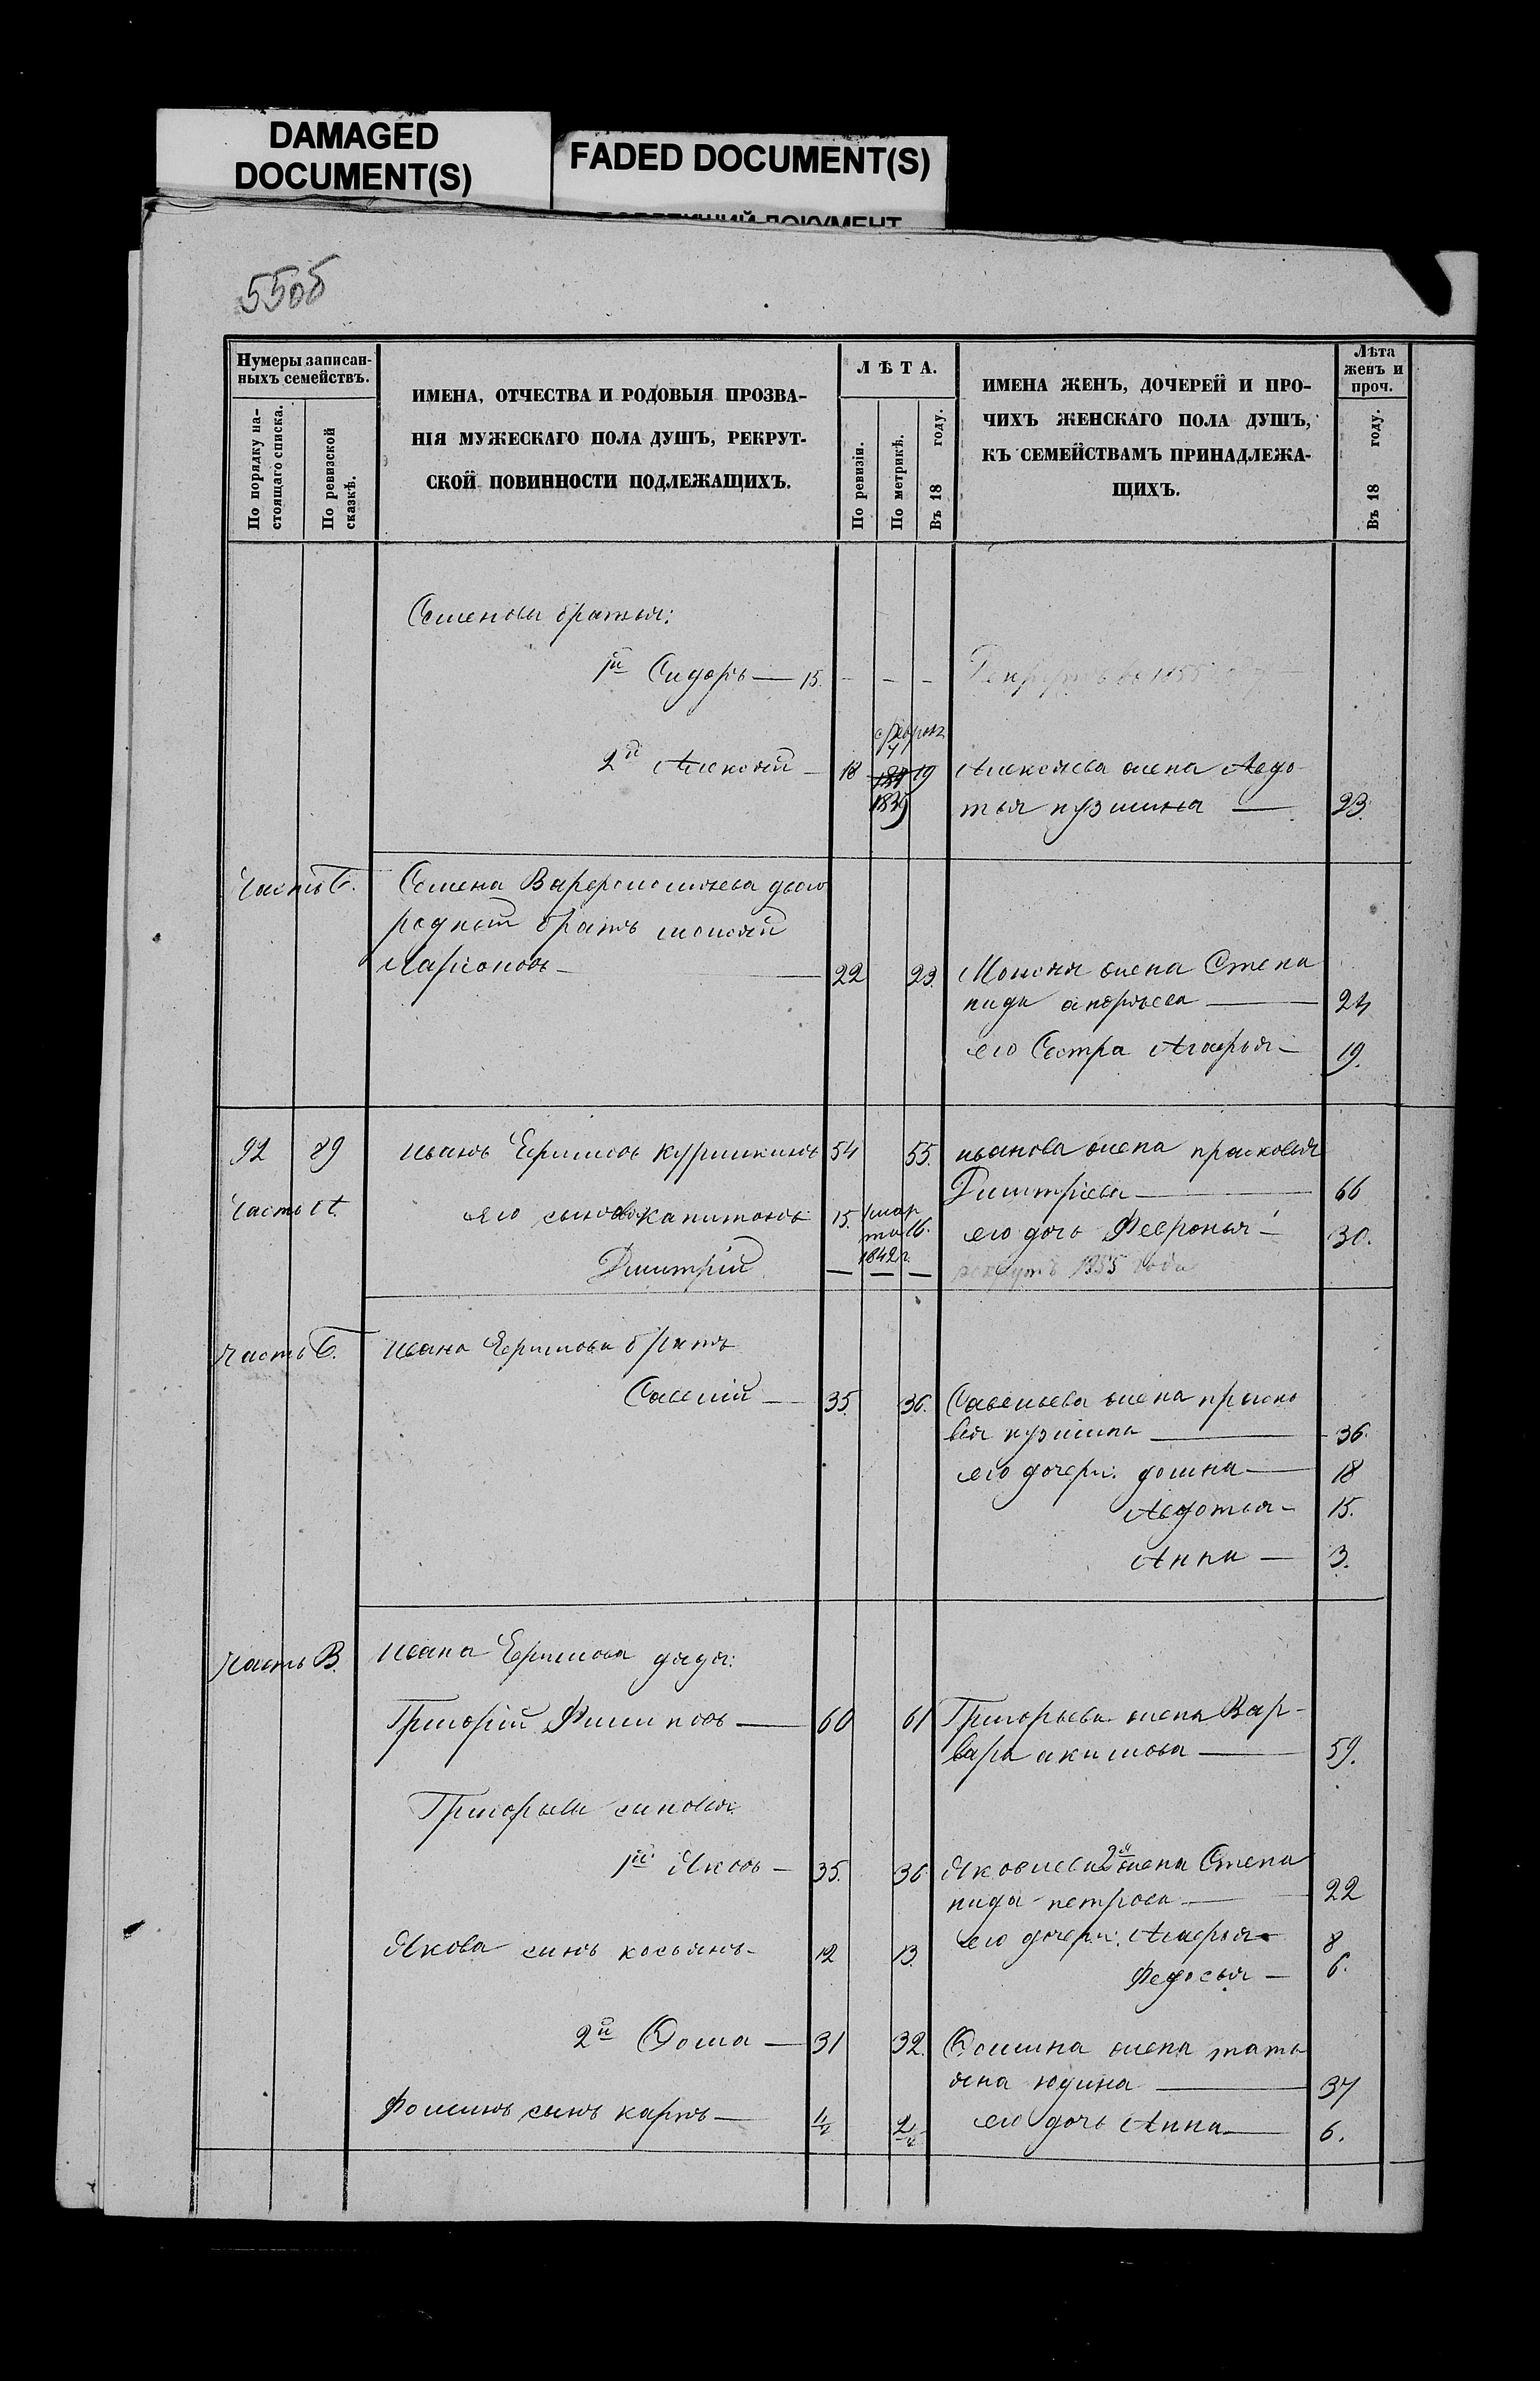 DAMAGED
DOCUMENT(S)
FADED DOCUMENT(S)
55об
Нумеры записан-
ныхъ семействъ.
По порядку на-
стоящаго списка.
По ревизской
сказкѣ.
ИМЕНА, ОТЧЕСТВА И РОДОВЫЯ ПРОЗВА-
НІЯ МУЖЕСКАГО ПОЛА ДУШЪ, РЕКРУТ-
СКОЙ ПОВИННОСТИ ПОДЛЕЖАЩИХЪ.
ЛѢТА.
По ревизіи.
По метрикѣ.
Въ 18 году.
ИМЕНА ЖЕНЪ, ДОЧЕРЕЙ И ПРО-
ЧИХЪ ЖЕНСКАГО ПОЛА ДУШЪ,
КЪ СЕМЕЙСТВАМЪ ПРИНАДЛЕЖА-
ЩИХЪ.
Лѣта
женъ и
проч.
Въ 18 году.
Семеновы братья:
1й Сидоръ — 15. - - -
2й Алексѣй — 18 1839 19 Алексѣева жена Авдо-
тья кузмина — 23.
Часть Б. Семена Варфоломѣева двою
родный братъ моисѣй
Ларіоновъ — 22 23. Моисѣя жена Степа
нида андрѣева — 24
его Сестра Агафья — 19.
92 89 иванъ Ефимовъ Куршикинъ 54 55. иванова жена прасковья
Дмитріева — 66
Часть А. его сыновья капитонъ 15. 1 мар
та 1842 г. 16. его дочь Февронья — 30.
Дмитрій — — — рекрутъ 1855 года
Часть Б. ивана Ефимова братъ
Савелій — 35. 36. Савельева жена праско
вья кузмина — 36.
его дочери: домна — 18
Авдотья — 15.
Анна — 3.
Часть В. ивана Ефимова дядя:
Григорій Филиповъ — 60 61 Григорьева жена Вар-
вара акимова — 59.
Григорьевы синовья:
1й Яковъ — 35. 36 Яковлева 2я жена Степа
нида петрова — 22
Якова синъ косьянъ — 12 13. его дочери: Агафья 8
Федосья — 6.
2й Фома — 31 32. Фомина жена тать
яна юдина — 37
Фоминъ сынъ карпъ — его дочь Анна — 6.